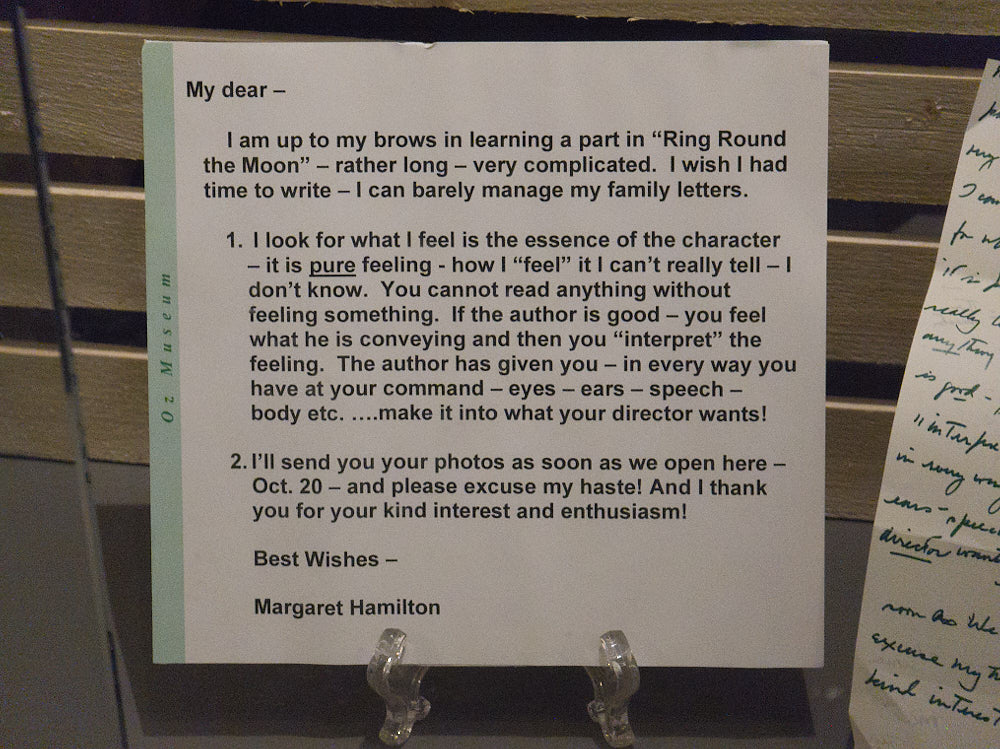 My dear –
I am up to my brows in learning a part in “Ring Round
the Moon” – rather long – very complicated. I wish I had
time to write – I can barely manage my family letters.
1. I look for what I feel is the essence of the character
– it is pure feeling - how I “feel” it I can’t really tell – I
don’t know. You cannot read anything without
feeling something. If the author is good – you feel
what he is conveying and then you “interpret” the
feeling. The author has given you – in every way you
have at your command – eyes – ears – speech –
body etc. ….make it into what your director wants!
2. I’ll send you your photos as soon as we open here –
Oct. 20 – and please excuse my haste! And I thank
you for your kind interest and enthusiasm!
Best Wishes –
Margaret Hamilton
Oz Museum
my
I
for
it is
really
anything
is good -
in
ears -
director
soon as we
excuse my
kind interest